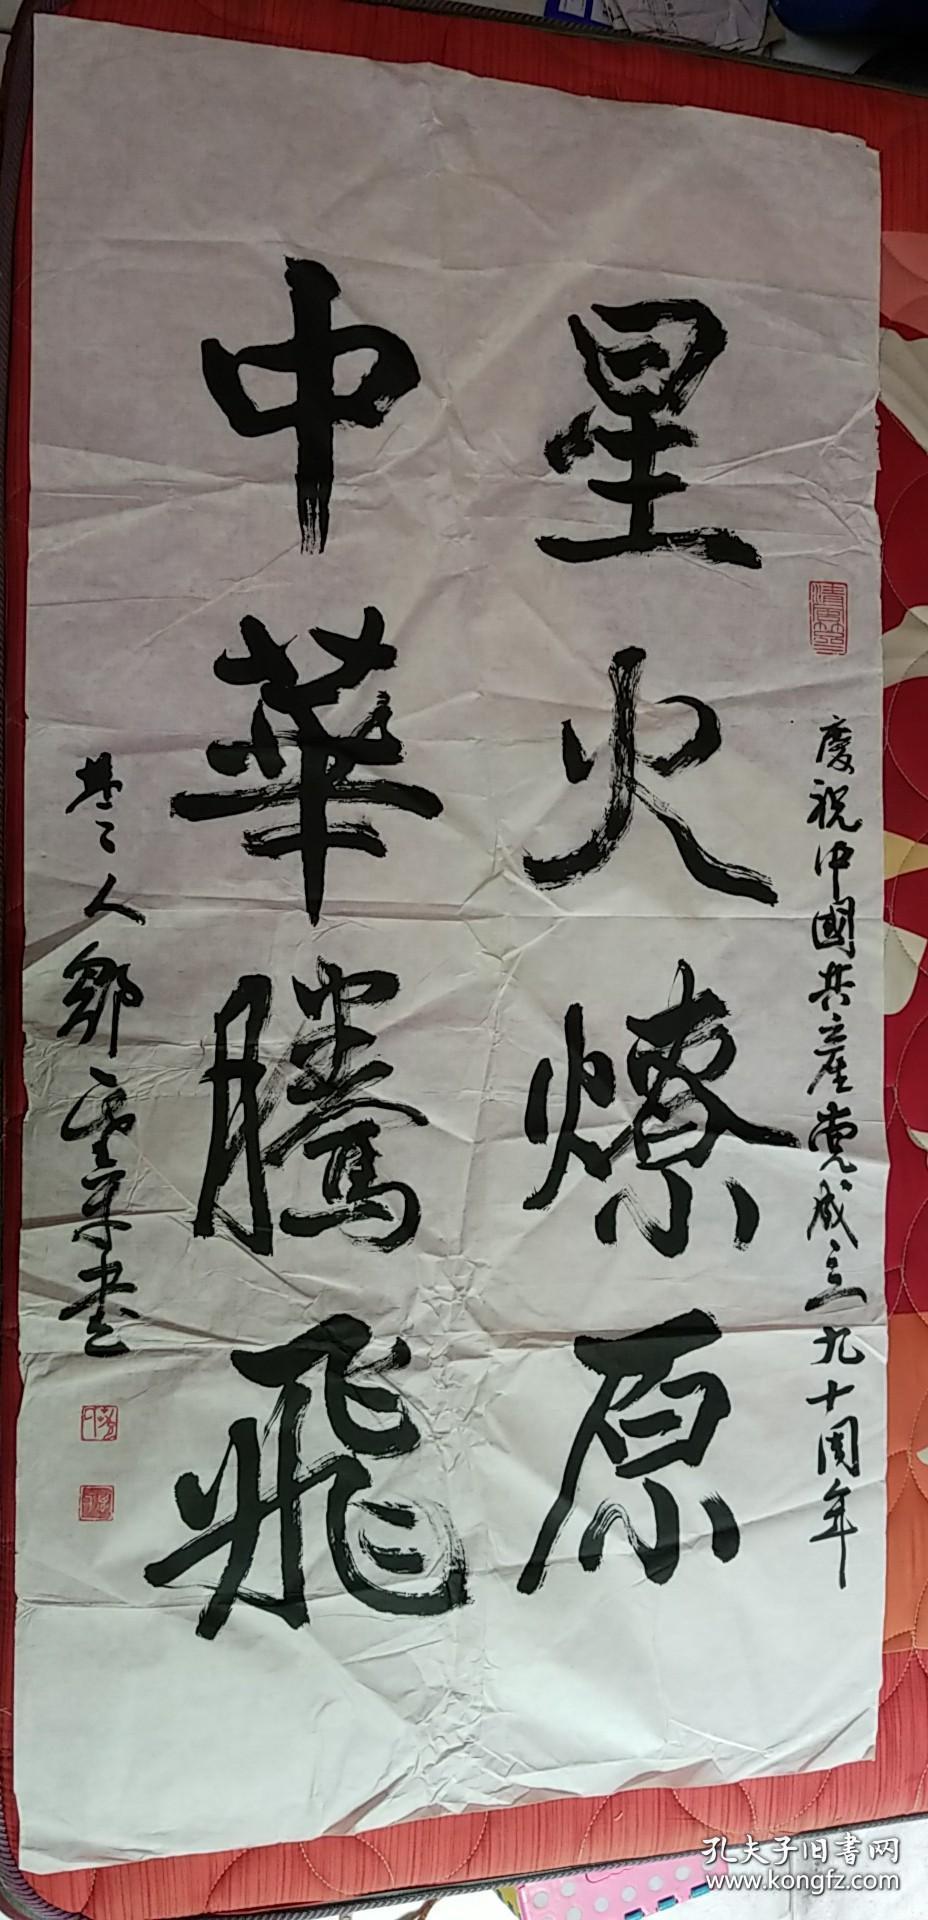 慶祝中國共產党成立九十周年
星火燎原
中華騰飛
人鄒書
孔夫子旧書网
www.kongfz.com